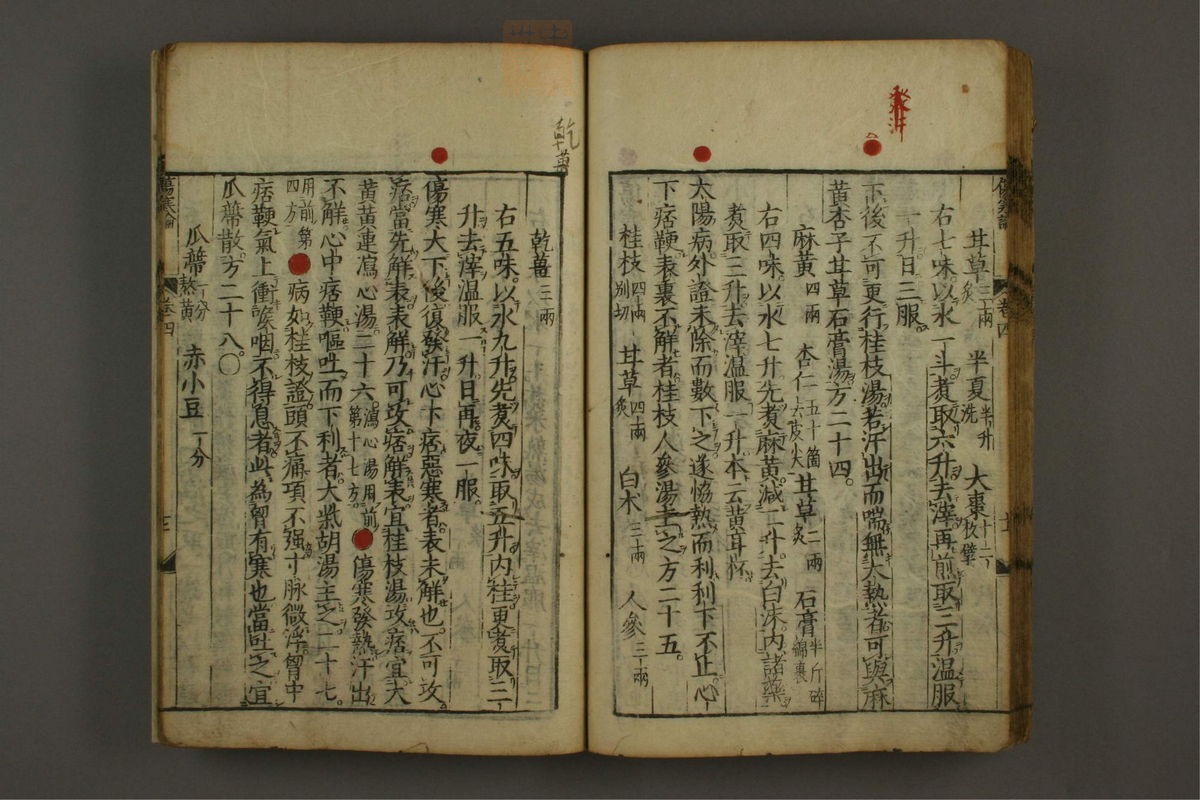 甘草三兩炙 半夏半升洗 大棗十二枚擘
右七味以水一斗煮取六升去滓再煎取三升温服
一升日三服
下後不可更行桂枝湯若汗出而喘無大熱者可與麻
黃杏子甘草石膏湯方二十四
麻黃四兩 杏仁五十箇去皮尖 甘草二兩炙 石膏半斤碎綿裹
右四味以水七升先煮麻黃減二升去白沫内諸藥
煮取三升去滓温服一升本云黃耳杯
太陽病外證未除而數下之遂恊熱而利利下不止心
下痞鞕表裏不解者桂枝人參湯主之方二十五
桂枝四兩別切 甘草四兩炙 白朮三兩 人參三兩
傷寒論 卷四
乾薑
乾薑三兩
右五味以水九升先煮四味取五升内桂更煮取三
升去滓温服一升日再夜一服
傷寒大下後復發汗心下痞惡寒者表未解也不可攻
痞當先解表表解乃可攻痞解表宜桂枝湯攻痞宜大
黃黃連瀉心湯二十六瀉心湯用前第十七方 傷寒發熱汗出
不解心中痞鞕嘔吐而下利者大柴胡湯主之二十七
用前第四方 病如桂枝證頭不痛項不强寸脉微浮胷中
痞鞕氣上衝咽喉不得息者此為胷有寒也當吐之宜
瓜蔕散方二十八
瓜蔕一分熬黃 赤小豆一分
傷寒論 卷四